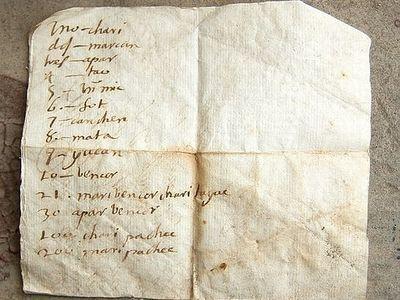 Uno-chari
dos-marian
tres-apar
4.-tau
5.-himic
6.-sut
7-canchen
8.-mata
9-yucan
10-bencor
21. maribencor chari tayac
30 apar bencor
100 chari pachac
200 mari pachac